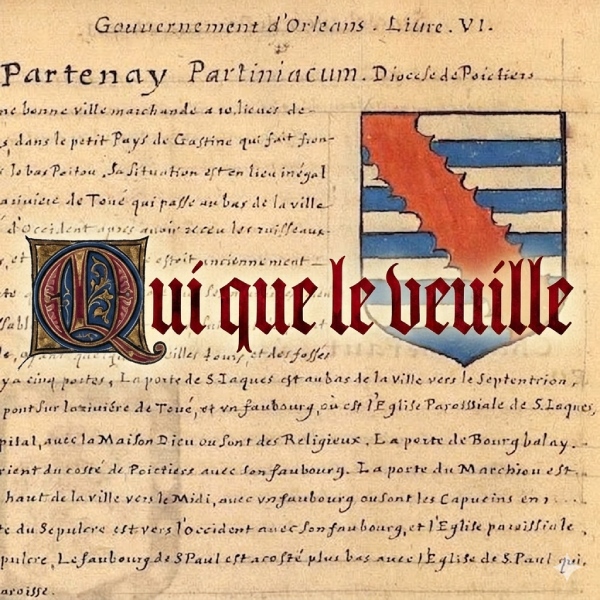 Gouvernement d'Orleans. Liure. VI.
Partenay Partiniacum. Diocese de Poictiers
ne bonne ville marchande a 10. lieues de
s, dans le petit Pays de Gastine qui fait fron-
s le bas Poitou. Sa Situation est en lieu inégal
ariviere de Toué qui passe au bas de la ville
d'Occident apres avoir receu les ruisseaux
s, et estoit anciennement
Qui que le veuille
illes Tours, et des fosses
y a cinq portes, La porte de S. Iaques est au bas de la ville vers le Septentrion,
pont sur la riviére de Toué, et vn faubourg, où est l'Eglise Paroissiale de S. Iaques,
pital, avec la Maison Dieu ou sont des Religieux. La porte de Bourgbalay.
rient du costé de Poictiers avec son faubourg. La porte du Marchiou est
haut de la ville vers le Midi, avec vn faubourg ou sont les Capucins en
te du Sepulcre est vers l'occident avec son faubourg, et l'Eglise paroissiale
pulcre, Le faubourg de S Paul est a costé plus bas avec l'Eglise de S. Paul qui.
aroisse.